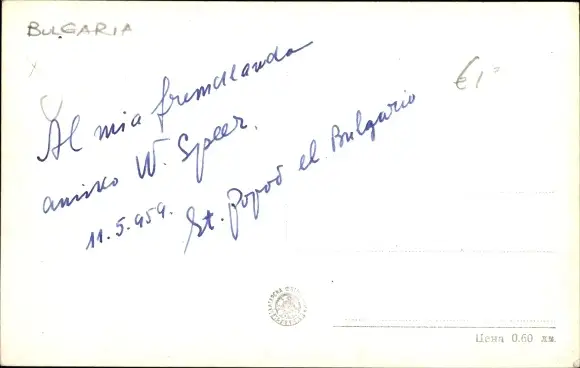 BULGARIA
€1=
Al mia fremdlanda
amiko W. Speer.
11.5.959.
St. Popov el Bulgario
Цена 0.60 лв.